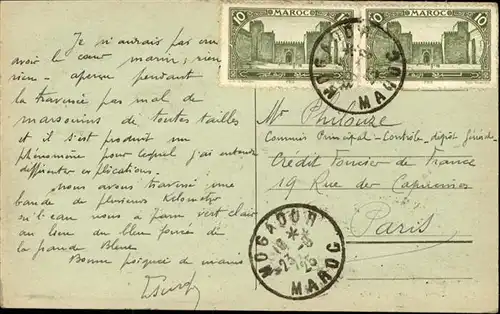 Je n'aurais pas cru
avoir le cœur marin, rien
rien - aperçu pendant
la traversée pas mal de
marsouins de toutes tailles
et il s'est produit un
phénomène pour lequel j'ai entendu
différentes explications.
nous avons traversé une
bande de plusieurs kilomètres
où l'eau nous a paru vert clair
au lieu du bleu foncé de
la grande Bleue
Bonne poignée de mains
10 MAROC 10
10 MAROC 10
MOGADOR
MAROC
Mr Philouze
Commis Principal - Contrôle - dépôt
Crédit Foncier de France
19 Rue des Capucines
Paris
MOGADOR
MAROC